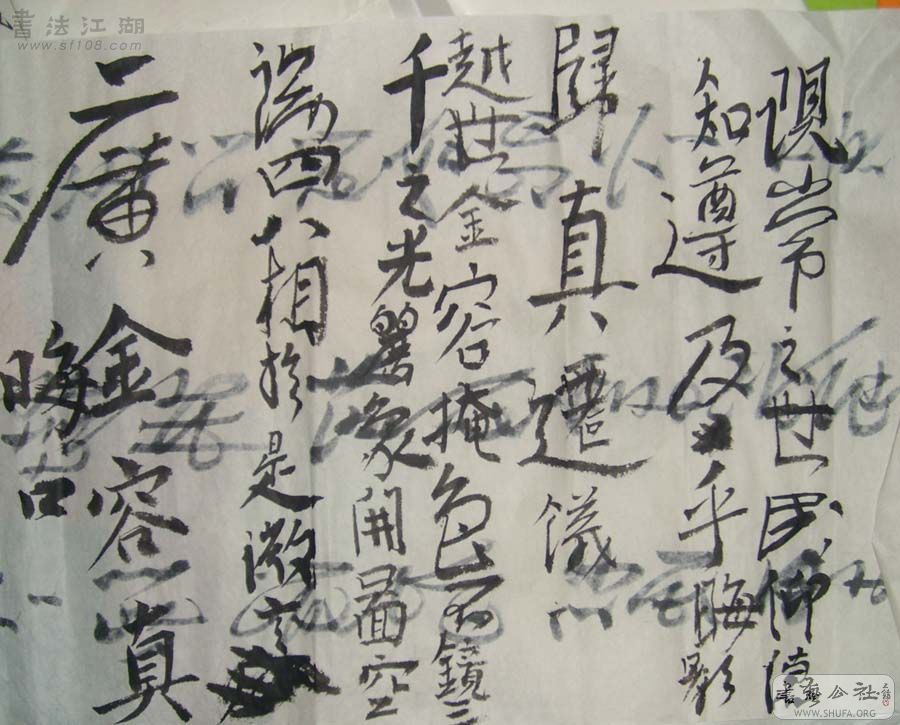 隕常之世民仰德
人知遵及乎晦影
歸真遷儀
越世金容掩色不鏡三
千之光麗象開圖空
端四八相於是微言
二廣金容真
晦古
書法江湖
www.sf108.com
書藝公社
WWW.SHUFA.ORG